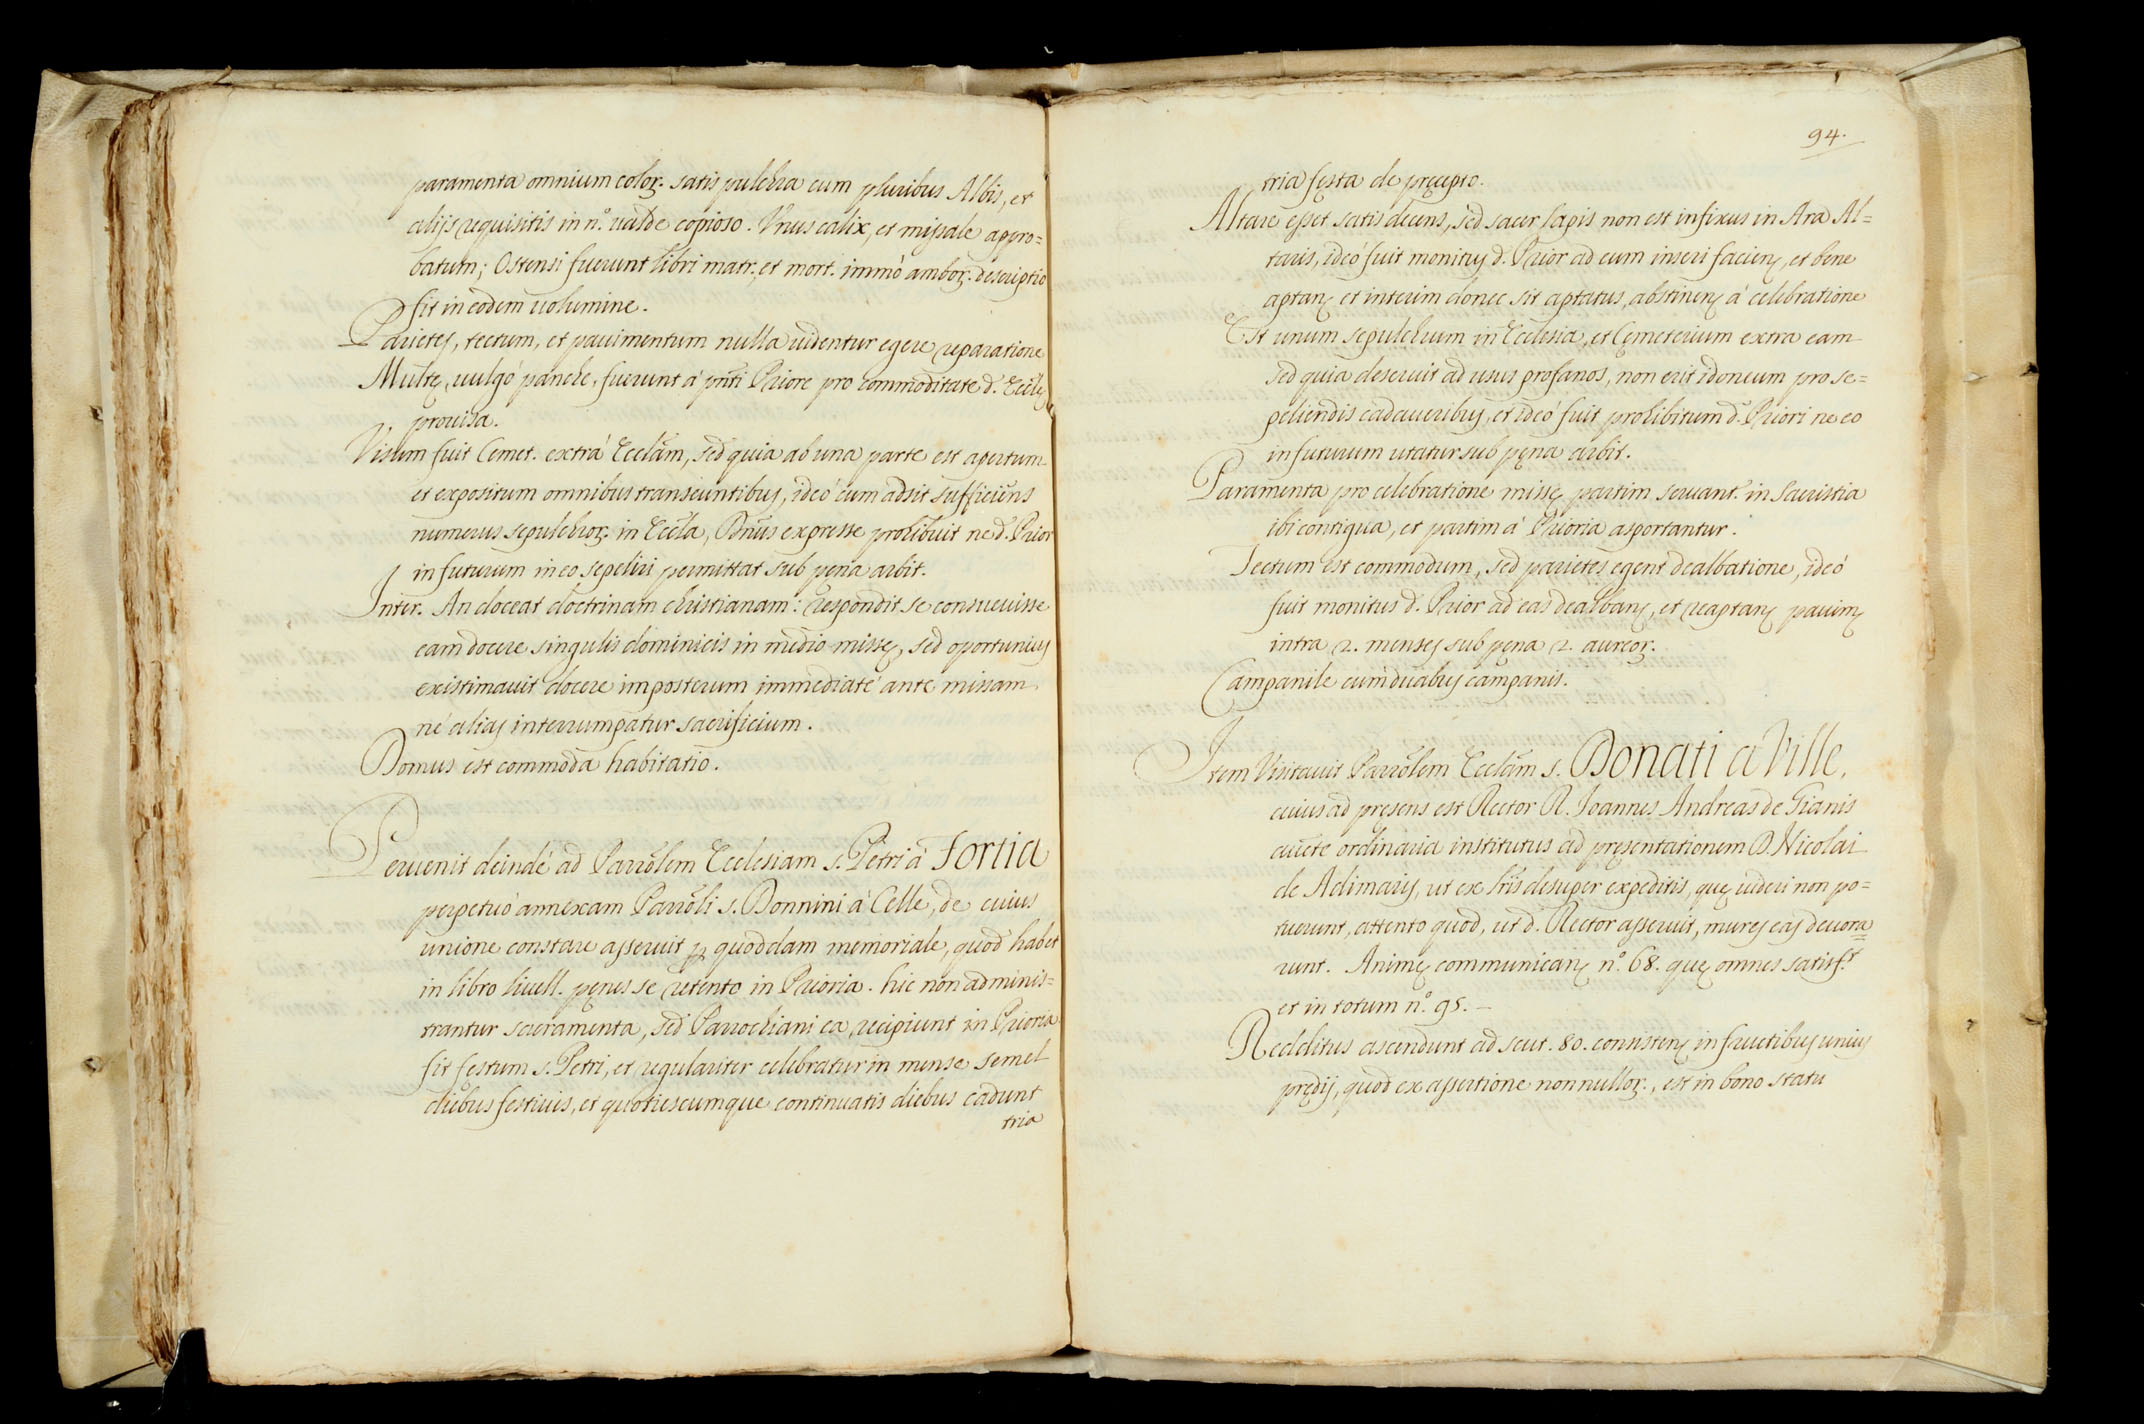 paramenta omnium coloꝝ. satis pulchra cum pluribus Albis, et
alijs requisitis in n.º valde copioso. Vnus calix, et missale appro=
batum; Ostensi fuerunt libri matr. et mort. immò amboꝝ. descriptio
fit in eodem uolumine.
Parietes, tectum, et pauimentum nulla uidentur egere reparatione
Multę, uulgò panche, fuerunt à pn̄ti Priore pro commoditate d. Ecclię
prouisa.
Visum fuit Cemet. extrà Ecclām, sed quia ab una parte est apertum
et expositum omnibus transeuntibus, ideò cum adsit sufficiens
numerus sepulchroꝝ. in Eccla, Dn̄us expresse prohibuit ne d. Prior
in futurum in eo sepeliri permittat sub pena arbit.
Inter. An doceat doctrinam christianam: respondit se consueuisse
eam docere singulis dominicis in medio missę, sed oportunius
existimauit docere imposterum immediatè ante missam
nè alias interrumpatur sacrificium.
Domus est commoda habitatio.
Peruenit deindè ad Parrōlem Ecclesiam s. Petri à Fortia
perpetuò annexam Parrōli s. Donnini à Celle, de cuius
unione constare asseruit ꝑ quoddam memoriale, quod habet
in libro liuell. penes se retento in Prioria. hic non adminis=
trantur sacramenta, sed Parrochiani ea recipiunt in Prioria
fit festum s. Petri, et regulariter celebratur in mense semel
diebus festiuis, et quotiescumque continuatis diebus cadunt
tria
94.
tria festa de pręcepto.
Altare esset satis decens, sed sacer lapis non est infixus in Ara Al=
taris, ideò fuit monitus d. Prior ad eum inseri facienꝝ, et bene
aptanꝝ et interim donec sit aptatus, abstinenꝝ à celebratione
Est unum sepulchrum in Ecclesia, et Cęmeterium extra eam
sed quia deseruit ad usus profanos, non erit idoneum pro se=
peliendis cadaueribus, et ideò fuit prohibitum d. Priori ne eo
in futurum utatur sub pęna arbit.
Paramenta pro celebratione missę partim seruant. in Sacristia
ibi contigua, et partim à Prioria asportantur.
Tectum est commodum, sed parietes egent dealbatione, ideò
fuit monitus d. Prior ad eas dealbanꝝ, et reaptanꝝ pauimꝝ
intra 2. menses sub pęna 2. aureoꝝ.
Campanile cum duabus campanis.
Item Visitauit Parrōlem Ecclām s. Donati a Ville,
cuius ad pręsens est Rector R. Joannes Andreas de Gianis
aucte ordinaria institutus ad pręsentationem D. Nicolai
de Adimarijs, ut ex lr̄is desuper expeditis, quę uideri non po=
tuerunt, attento quod, ut d. Rector asseruit, mures eas deuora=
runt. Animę communicanꝝ n.º 68. quę omnes satisf.t
et in totum n.º 95.—
Redditus ascendunt ad scut. 80. consistenꝝ in fructibus unius
prędij, quod ex assertione nonnulloꝝ., est in bono statu